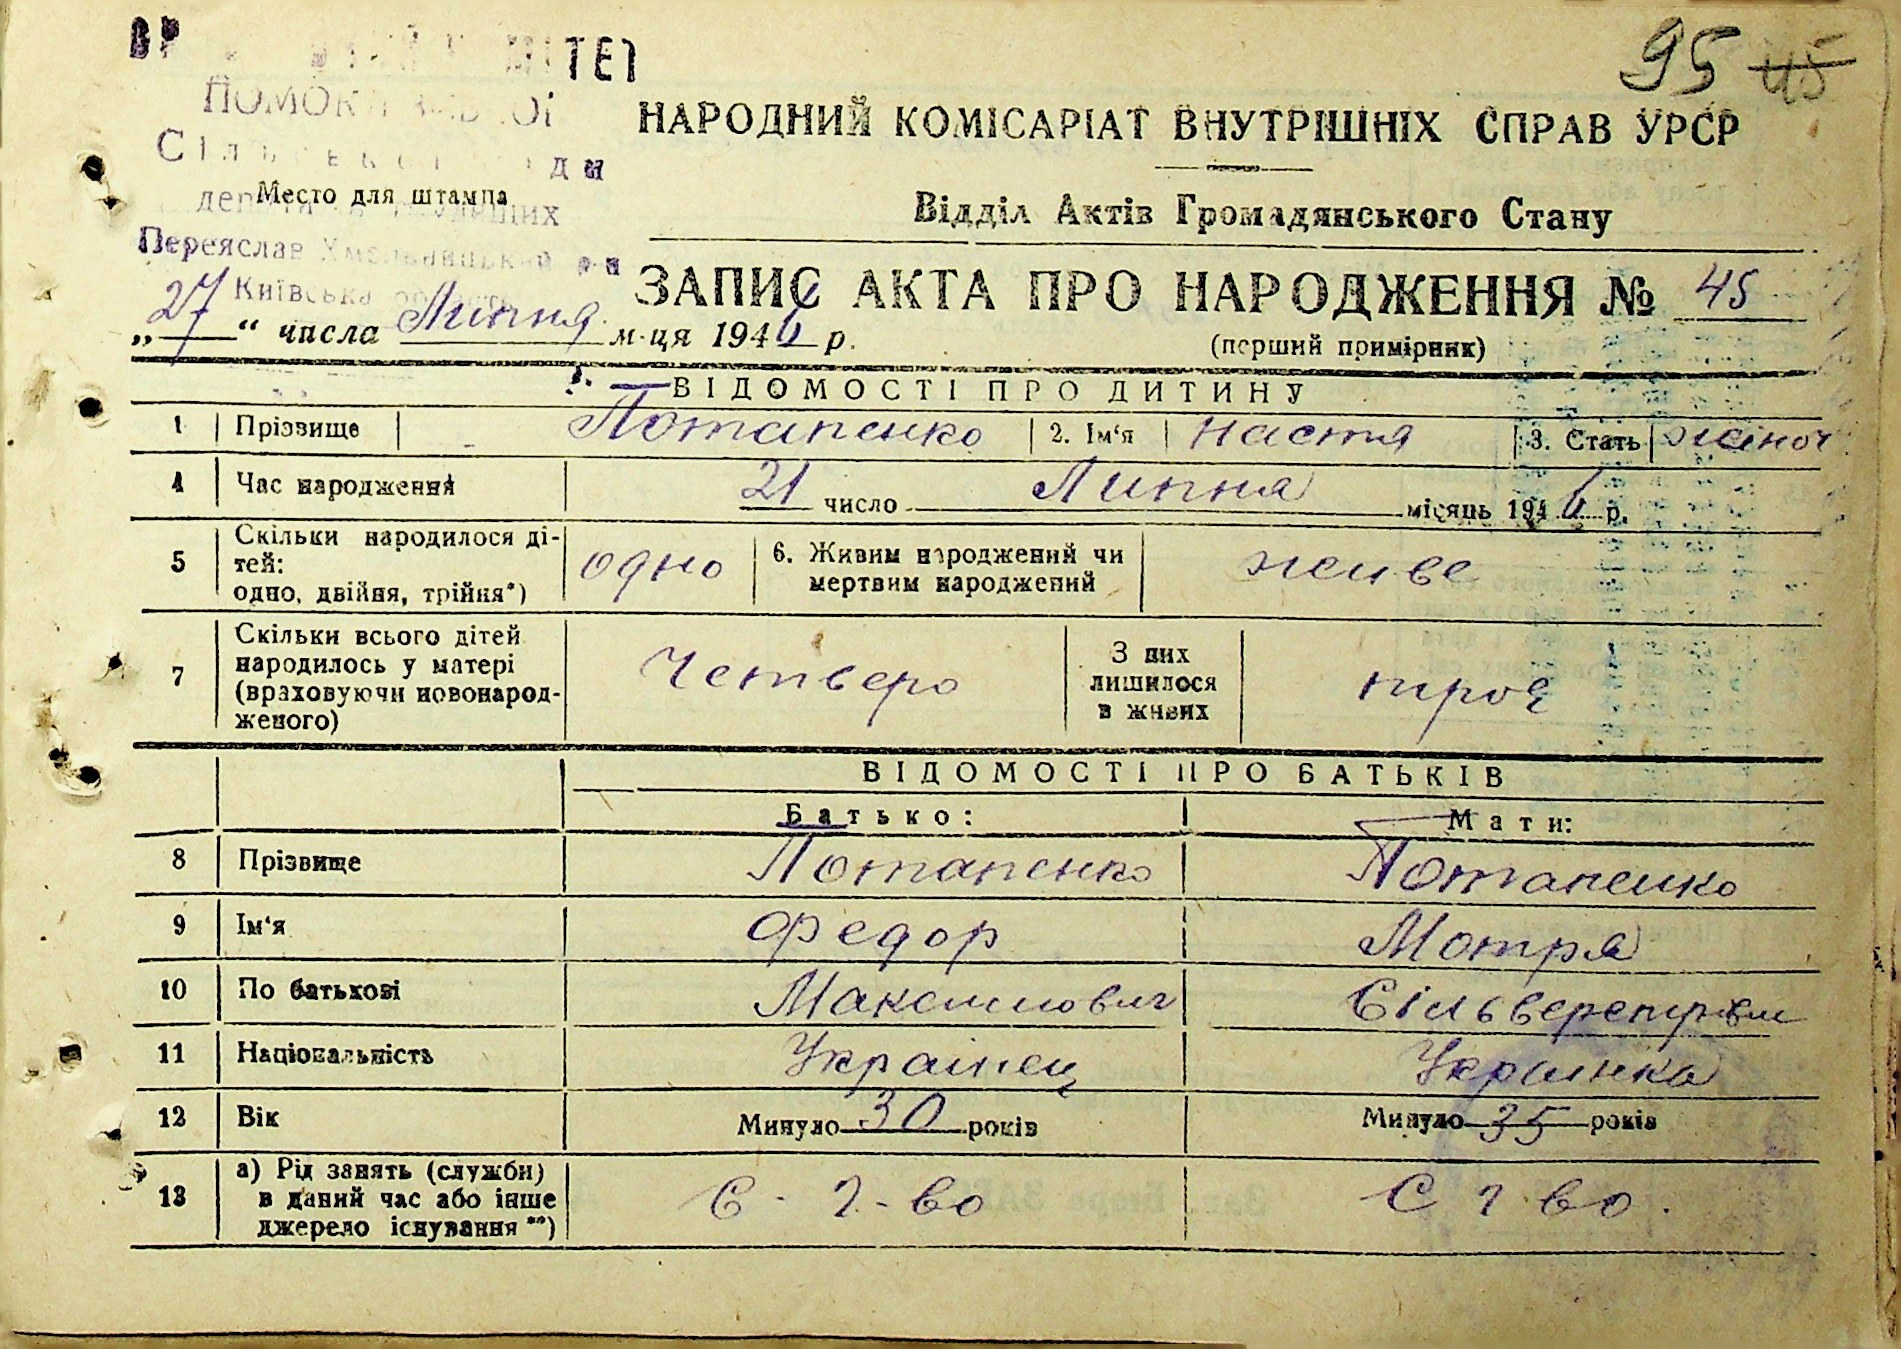 95 45
НАРОДНИЙ КОМІСАРІАТ ВНУТРІШНІХ СПРАВ УРСР
Место для штампа
Переяслав Хмельницький р-н
Відділ Актів Громадянського Стану
Київська область
ЗАПИС АКТА ПРО НАРОДЖЕННЯ № 45
„27“ числа Липня м-ця 1946 р.
(перший примірник)
ВІДОМОСТІ ПРО ДИТИНУ
1 Прізвище Потапенко 2. Ім'я Настя 3. Стать жіноч
4 Час народження 21 число Липня місяць 1946 р.
5 Скільки народилося ді-
тей:
одно, двійня, трійня*) одно 6. Живим народжений чи
мертвим народжений живе
7 Скільки всього дітей
народилось у матері
(враховуючи новонарод-
женого) Четверо З них
лишилося
в живих троє
ВІДОМОСТІ ПРО БАТЬКІВ
Батько: Мати:
8 Прізвище Потапенко Потапенко
9 Ім'я Федор Мотря
10 По батькові Максимович
11 Національність Українец Українка
12 Вік Минуло 30 років Минуло 35 років
13 а) Рід занять (служби)
в даний час або інше
джерело існування **) С - г - во С г во.